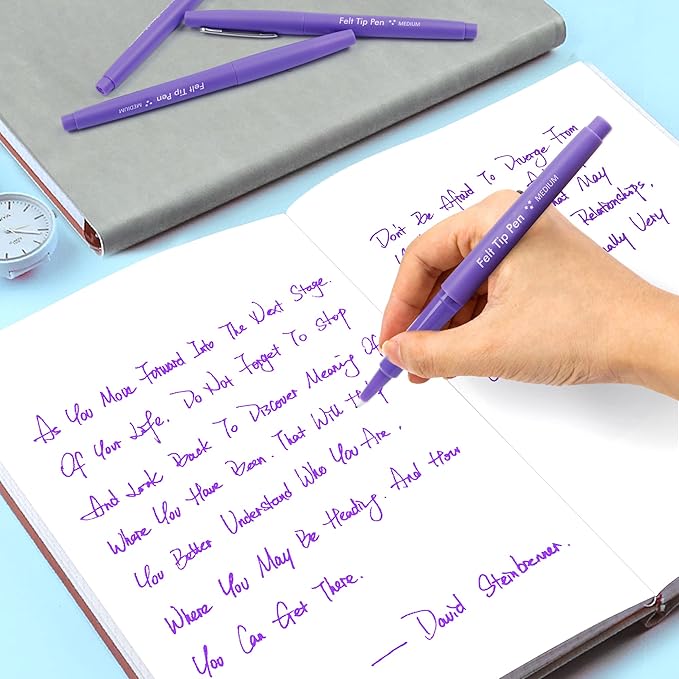 Felt Tip Pen MEDIUM
Felt Tip Pen MEDIUM
Felt Tip Pen MEDIUM
As You Move Forward Into The Next Stage
Of Your Life. Do Not Forget To Stop
And Look Back To Discover Meaning Of
Where You Have Been. That Will
You Better Understand Who You Are,
Where You May Be Heading. And How
You Can Get There.
— David Steinbrenner.
Don't Be Afraid To Diverge From
May
Relationships,
Very